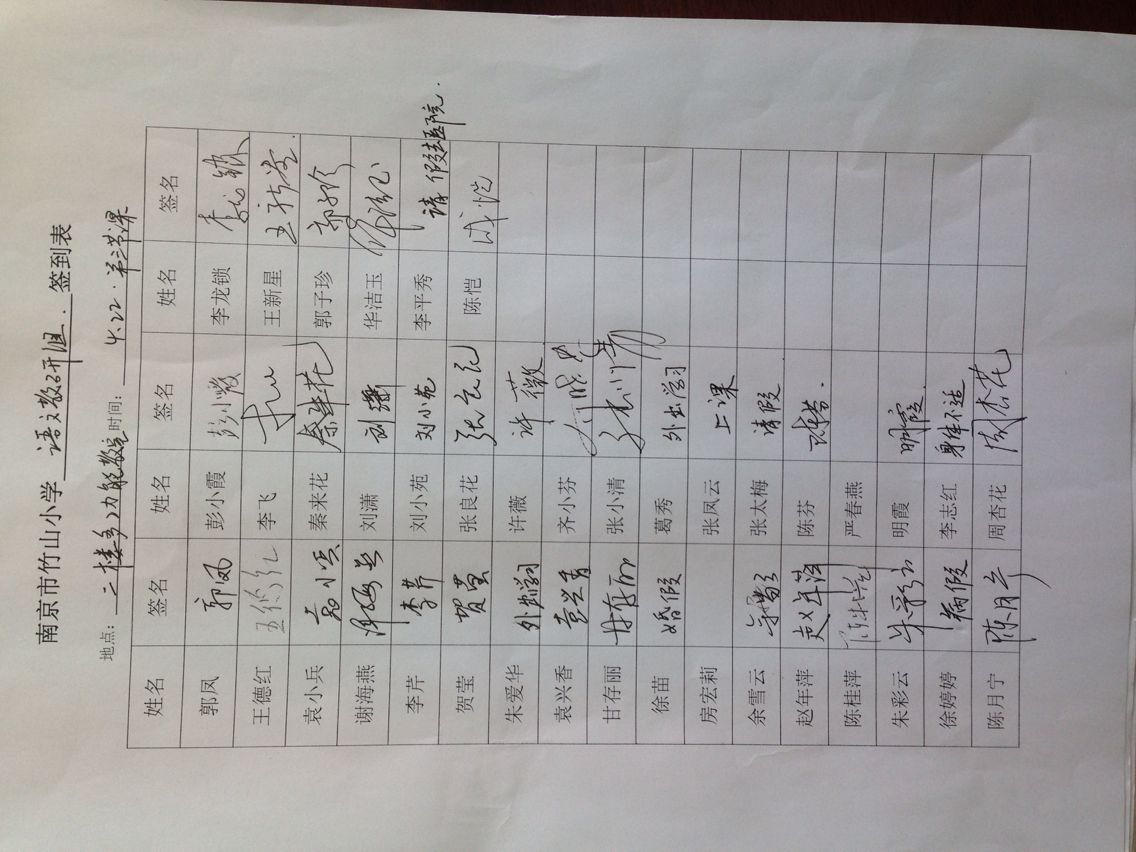 南京市竹山小学 语文教研组 签到表
地点: 二楼多功能教室 时间: 4.22.第三节课
姓名 签名 姓名 签名 姓名 签名
郭凤 郭凤 彭小霞 彭小霞 李龙锁 李龙锁
王德红 王德红 李飞 王新星 王新星
袁小兵 袁小兵 秦来花 秦来花 郭子珍 郭子珍
谢海燕 谢海燕 刘潇 刘潇 华洁玉 华洁玉
李芹 李芹 刘小苑 刘小苑 李平秀 请假去医院.
贺莹 贺莹 张良花 张良花 陈恺 陈恺
朱爱华 外出学习 许薇 许薇
袁兴香 袁兴香 齐小芬
甘存丽 甘存丽 张小清 张小清
徐苗 婚假 葛秀 外出学习
房宏莉 张凤云 上课
余雪云 余雪云 张太梅 请假
赵年萍 赵年萍 陈芬 陈芬.
陈桂萍 陈桂萍 严春燕
朱彩云 朱彩云 明霞 明霞
徐婷婷 病假 李志红 身体不适
陈月宁 陈月宁 周杏花 周杏花